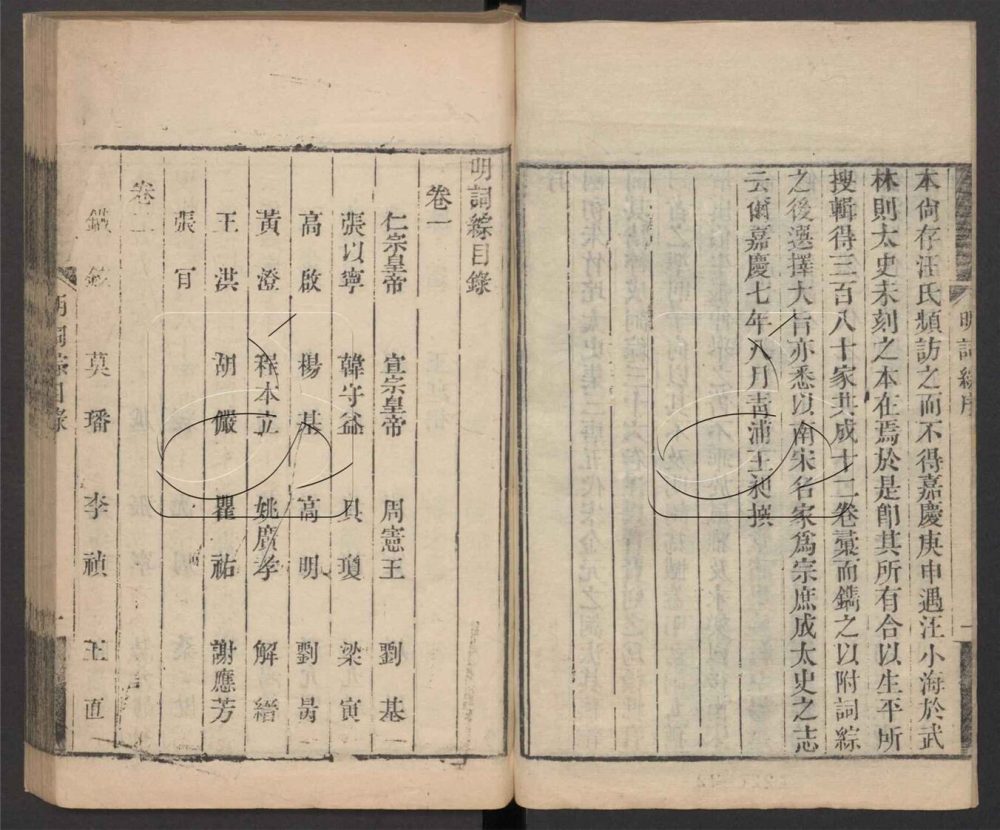 本尙存汪氏頻訪之而不得嘉慶庚申遇汪小海於武
林則太史未刻之本在焉於是卽其所有合以生平所
搜輯得三百八十家共成十二卷彙而鐫之以附詞綜
之後選擇大旨亦悉以南宋名家爲宗庶成太史之志
云爾嘉慶七年八月靑浦王昶撰
明詞綜目錄
卷一
仁宗皇帝 宣宗皇帝 周憲王 劉基
張以寧 韓守益 貝瓊 梁寅
高啟 楊基 高明 劉昺
黃澄 程本立 姚廣孝 解縉
王洪 胡儼 瞿祐 謝應芳
張肎
卷二
莫璠 李禎 王直